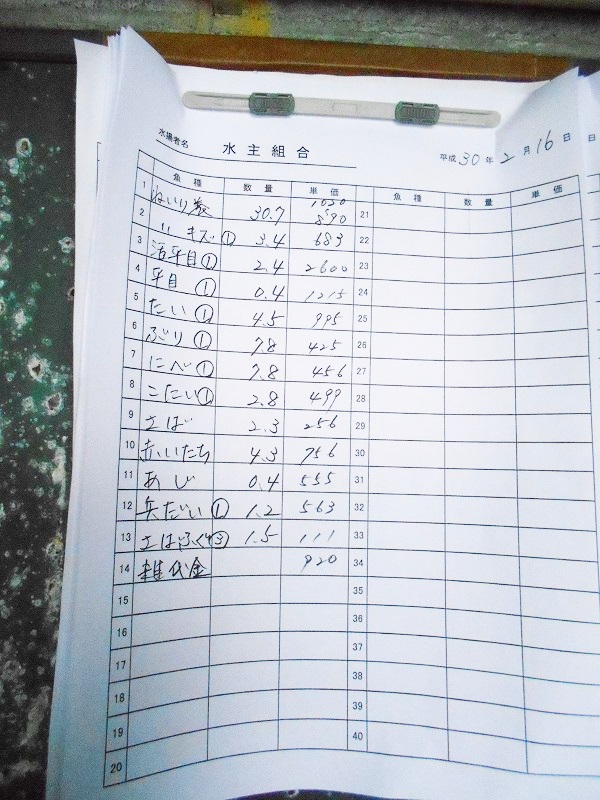 水揚者名 水主組合 平成30年2月16日
魚種 数量 単価 魚種 数量 単価
1 30.7 1020 890 21
2 〃 キズ① 3.4 683 22
3 活平目① 2.4 2600 23
4 平目① 0.4 1215 24
5 たい① 4.5 995 25
6 ぶり① 7.8 425 26
7 にべ① 7.8 456 27
8 こたい① 2.8 499 28
9 さば 2.3 256 29
10 赤いたち 4.3 756 30
11 あじ 0.4 555 31
12 兵だい① 1.2 563 32
13 さばふぐ③ 1.5 111 33
14 雑代金 920 34
15 35
16 36
17 37
18 38
19 39
20 40
単価
日